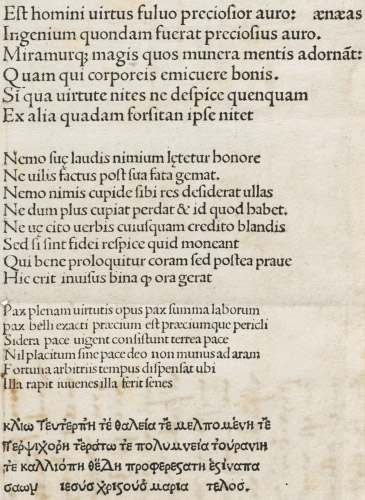 Est homini uirtus fuluo preciosior auro: ænæas
Ingenium quondam fuerat preciosius auro.
Miramurq; magis quos munera mentis adornāt:
Quam qui corporeis emicuere bonis.
Si qua uirtute nites ne despice quenquam
Ex alia quadam forsitan ipse nitet
Nemo suę laudis nimium lętetur honore
Ne uilis factus post sua fata gemat.
Nemo nimis cupide sibi res desiderat ullas
Ne dum plus cupiat perdat & id quod habet.
Ne uę cito uerbis cuiusquam credito blandis
Sed si sint fidei respice quid moneant
Qui bene proloquitur coram sed postea praue
Hic erit inuisus bina ꝙ ora gerat
Pax plenam uirtutis opus pax summa laborum
pax belli exacti præcium est præciumque pericli
Sidera pace uigent consistunt terrea pace
Nil placitum sine pace deo non munus ad aram
Fortuna arbitriis tempus dispensat ubi
Illa rapit iuuenes illa ferit senes
κλιω Τευτερπη τε θαλεια τε μελπομενη τε
Περψιχορη τερατω τε πολυμνεια τουρανιη
τε καλλιοπη θεδη προφερεςατη εςιναπα
σαωμ ιεσυς χριςουσ μαρια τελοσ.